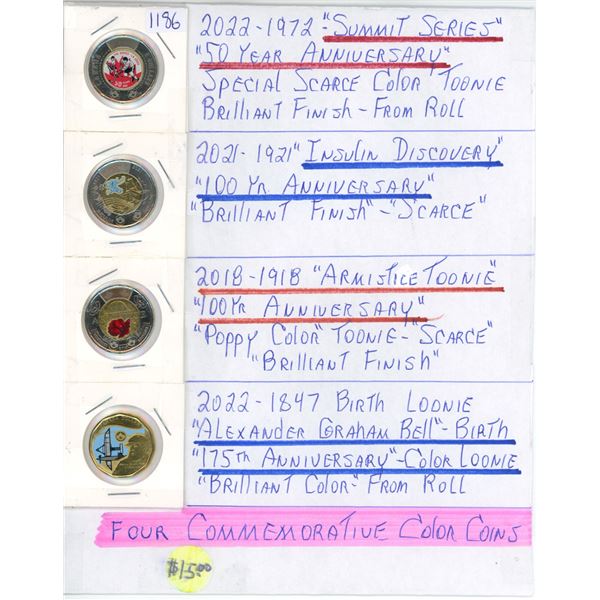 1186
2022-1972-"Summit Series"
"50 Year Anniversary"
Special Scarce Color Toonie
Brilliant Finish - From Roll
2021-1921 "Insulin Discovery"
"100 Yr. Anniversary"
"Brilliant Finish" - "Scarce"
2018-1918 "Armistice Toonie"
"100 Yr Anniversary"
"Poppy Color" Toonie - "Scarce"
"Brilliant Finish"
2022-1847 Birth Loonie
"Alexander Graham Bell"- Birth
"175th Anniversary"-Color Loonie
"Brilliant Color- From Roll
Four Commemorative Color Coins
$15.00